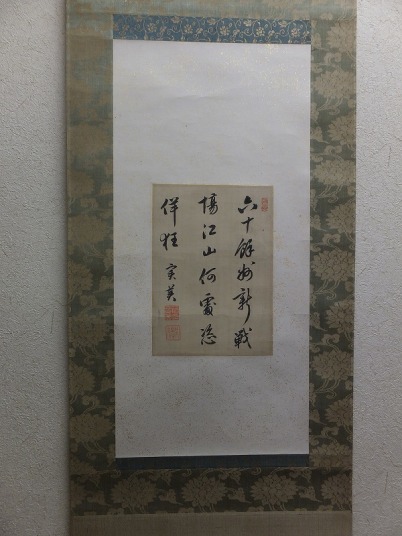 六十餘州新戰
場江山何處恣
佯狂 実英